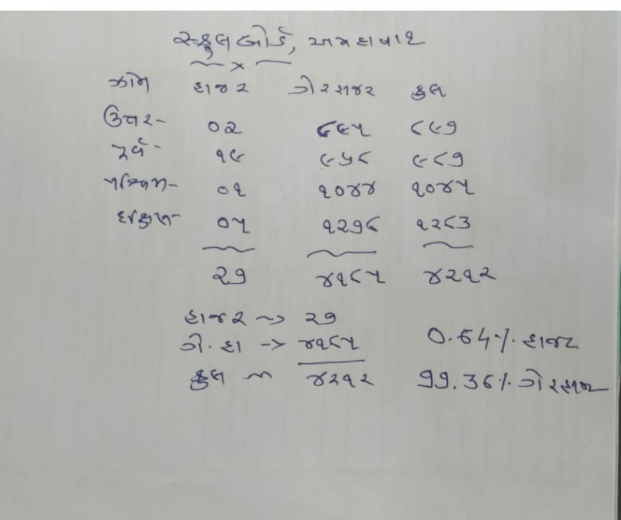 સ્કુલબોર્ડ, અમદાવાદ
ઝોન હાજર ગેરહાજર કુલ
ઉત્તર- ૦૨ ૮૯૫ ૮૯૭
પૂર્વ- ૧૯ ૯૬૮ ૯૮૭
પશ્ચિમ- ૦૧ ૧૦૪૪ ૧૦૪૫
દક્ષિણ- ૦૫ ૧૨૭૮ ૧૨૮૩
૨૭ ૪૧૮૫ ૪૨૧૨
હાજર → ૨૭
ગે. હા → ૪૧૮૫ 0.64% હાજર
કુલ ~ ૪૨૧૨ 99.36% ગેરહાજર